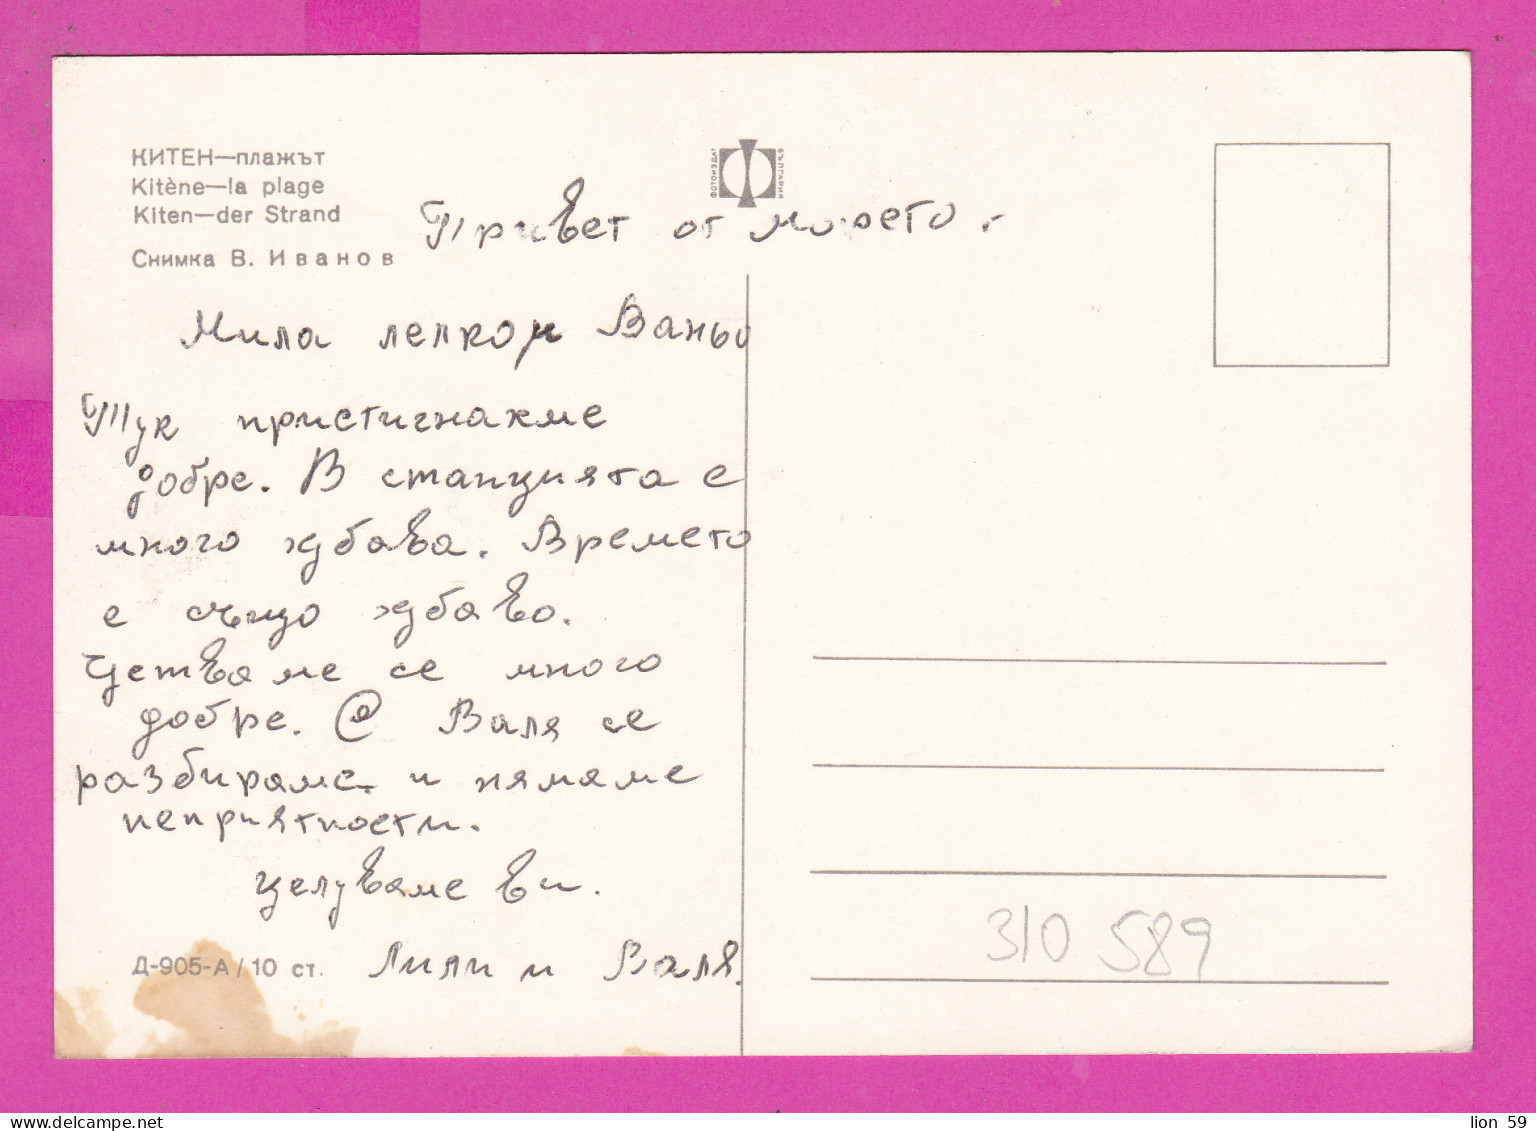 КИТЕН—плажът
Kitène—la plage
Kiten—der Strand
Снимка В. Иванов
ФОТОИЗДАТ
БЪЛГАРИЯ
Привет от морето.
Мила лелко и Ваньо
Тук пристигнахме
добре. В станцията е
много хубаво. Времето
е също хубаво.
Четваме се много
добре. С Валя се
разбираме и нямаме
неприятности.
Целуваме ви.
Лили и Валя.
Д-905-А / 10 ст.
310 589
lion 59